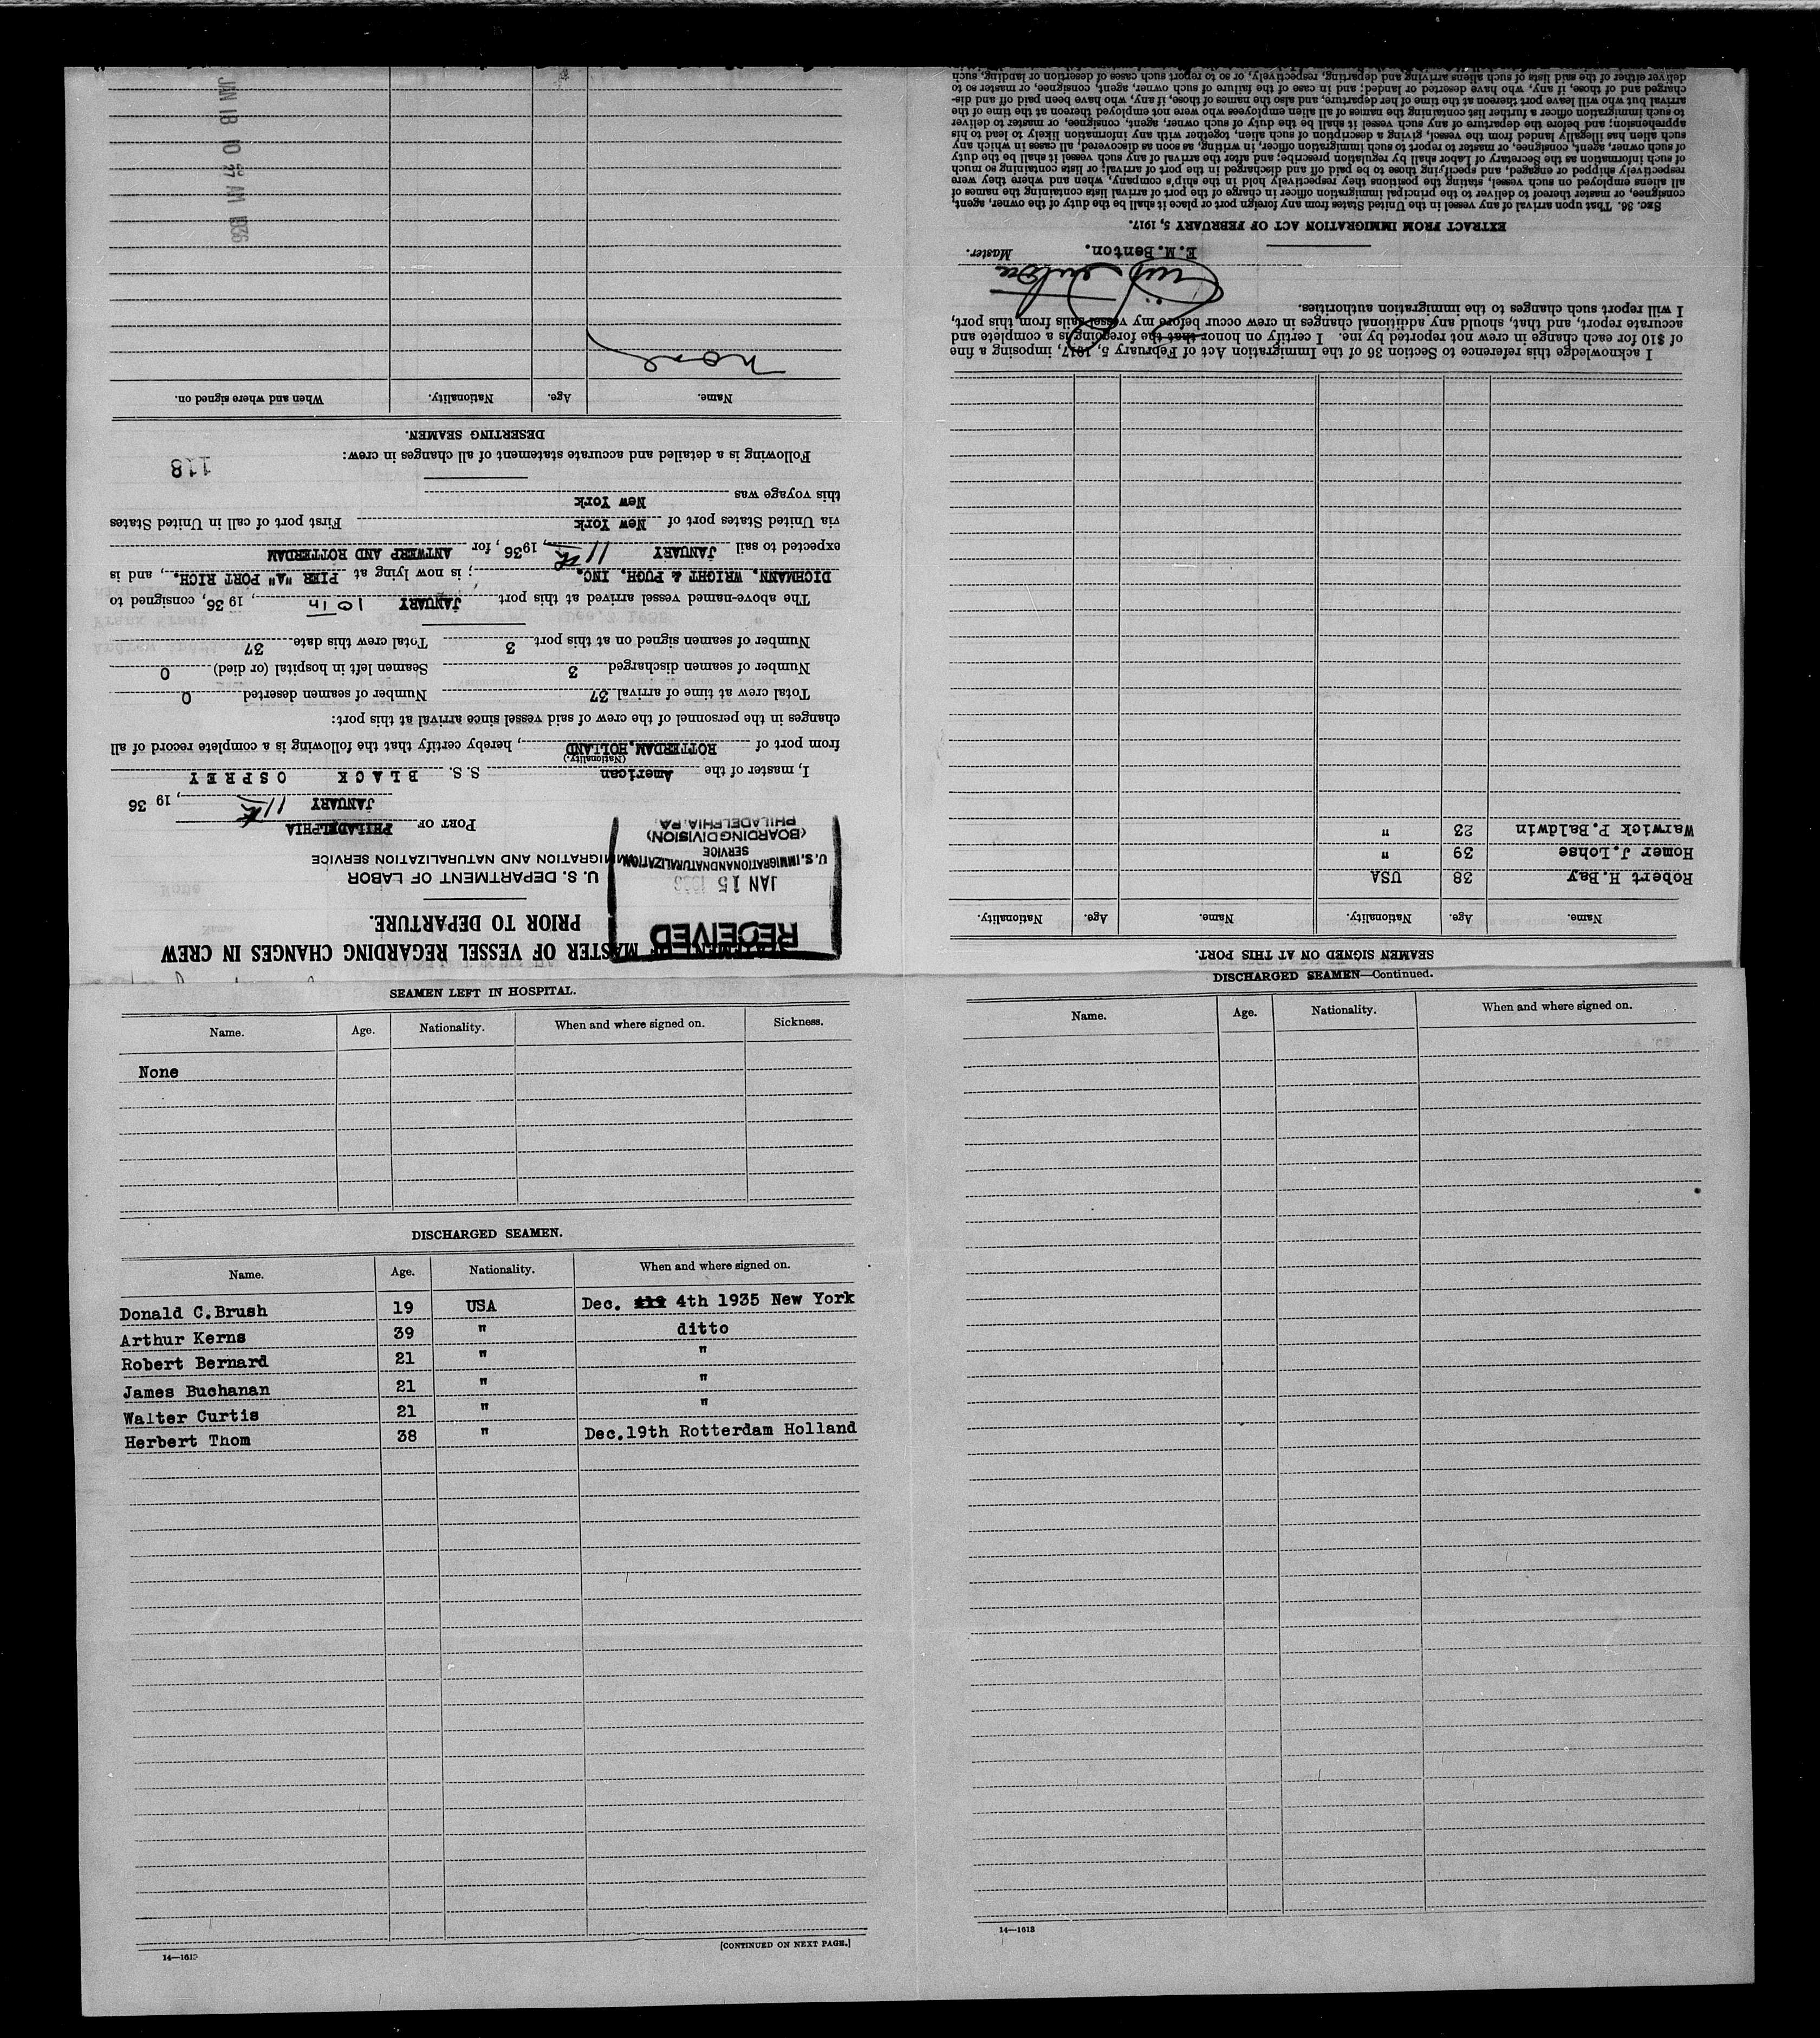 STATEMENT OF MASTER OF VESSEL REGARDING CHANGES IN CREW
PRIOR TO DEPARTURE.
RECEIVED
JAN 15 1936
U. S. IMMIGRATION AND NATURALIZATION
SERVICE
(BOARDING DIVISION)
PHILADELPHIA, PA.
U. S. DEPARTMENT OF LABOR
IMMIGRATION AND NATURALIZATION SERVICE
PORT OF PHILADELPHIA
JANUARY 11th, 19 36
I, master of the American S. S. BLACK OSPREY
(Nationality.)
from port of ROTTERDAM, HOLLAND, hereby certify that the following is a complete record of all
changes in the personnel of the crew of said vessel since arrival at this port:
Total crew at time of arrival 37 Number of seamen deserted 0
Number of seamen discharged 3 Seamen left in hospital (or died) 0
Number of seamen signed on at this port 3 Total crew this date 37
The above-named vessel arrived at this port JANUARY 10th, 19 36, consigned to
DICHMANN, WRIGHT & PUGH, INC.; is now lying at PIER "A" PORT RICH., and is
expected to sail JANUARY 11th, 1936, for ANTWERP AND ROTTERDAM
via United States port of New York First port of call in United States
this voyage was New York
Following is a detailed and accurate statement of all changes in crew:
118
DESERTING SEAMEN.
Name. Age. Nationality. When and where signed on.
None
JAN 18 10 27 AM 1936
SEAMEN SIGNED ON AT THIS PORT.
Name. Age. Nationality. Name. Age. Nationality.
Robert H.Bay 38 USA
Homer J.Lohse 39 "
Warwick P.Baldwin 23 "
I acknowledge this reference to Section 36 of the Immigration Act of February 5, 1917, imposing a fine
of $10 for each change in crew not reported by me. I certify on honor that the foregoing is a complete and
accurate report, and that, should any additional changes in crew occur before my vessel sails from this port,
I will report such changes to the immigration authorities.
E.M.Benton. Master.
EXTRACT FROM IMMIGRATION ACT OF FEBRUARY 5, 1917.
SEC. 36. That upon arrival of any vessel in the United States from any foreign port or place it shall be the duty of the owner, agent,
consignee, or master thereof to deliver to the principal immigration officer in charge of the port of arrival lists containing the names of
all aliens employed on such vessel, stating the positions they respectively hold in the ship's company, when and where they were
respectively shipped or engaged, and specifying those to be paid off and discharged in the port of arrival; or lists containing so much
of such information as the Secretary of Labor shall by regulation prescribe; and after the arrival of any such vessel it shall be the duty
of such owner, agent, consignee, or master to report to such immigration officer, in writing, as soon as discovered, all cases in which any
such alien has illegally landed from the vessel, giving a description of such alien, together with any information likely to lead to his
apprehension; and before the departure of any such vessel it shall be the duty of such owner, agent, consignee, or master to deliver
to such immigration officer a further list containing the names of all alien employees who were not employed thereon at the time of the
arrival but who will leave port thereon at the time of her departure, and also the names of those, if any, who have been paid off and dis-
charged and of those, if any, who have deserted or landed; and in case of the failure of such owner, agent, consignee, or master so to
deliver either of the said lists of such aliens arriving and departing, respectively, or so to report such cases of desertion or landing, such
SEAMEN LEFT IN HOSPITAL.
Name. Age. Nationality. When and where signed on. Sickness.
None
DISCHARGED SEAMEN.
Name. Age. Nationality. When and where signed on.
Donald C.Brush 19 USA Dec. 4th 1935 New York
Arthur Kerns 39 " ditto
Robert Bernard 21 " "
James Buchanan 21 " "
Walter Curtis 21 " "
Herbert Thom 38 " Dec.19th Rotterdam Holland
14—1613
[CONTINUED ON NEXT PAGE.]
DISCHARGED SEAMEN—Continued.
Name. Age. Nationality. When and where signed on.
14—1613